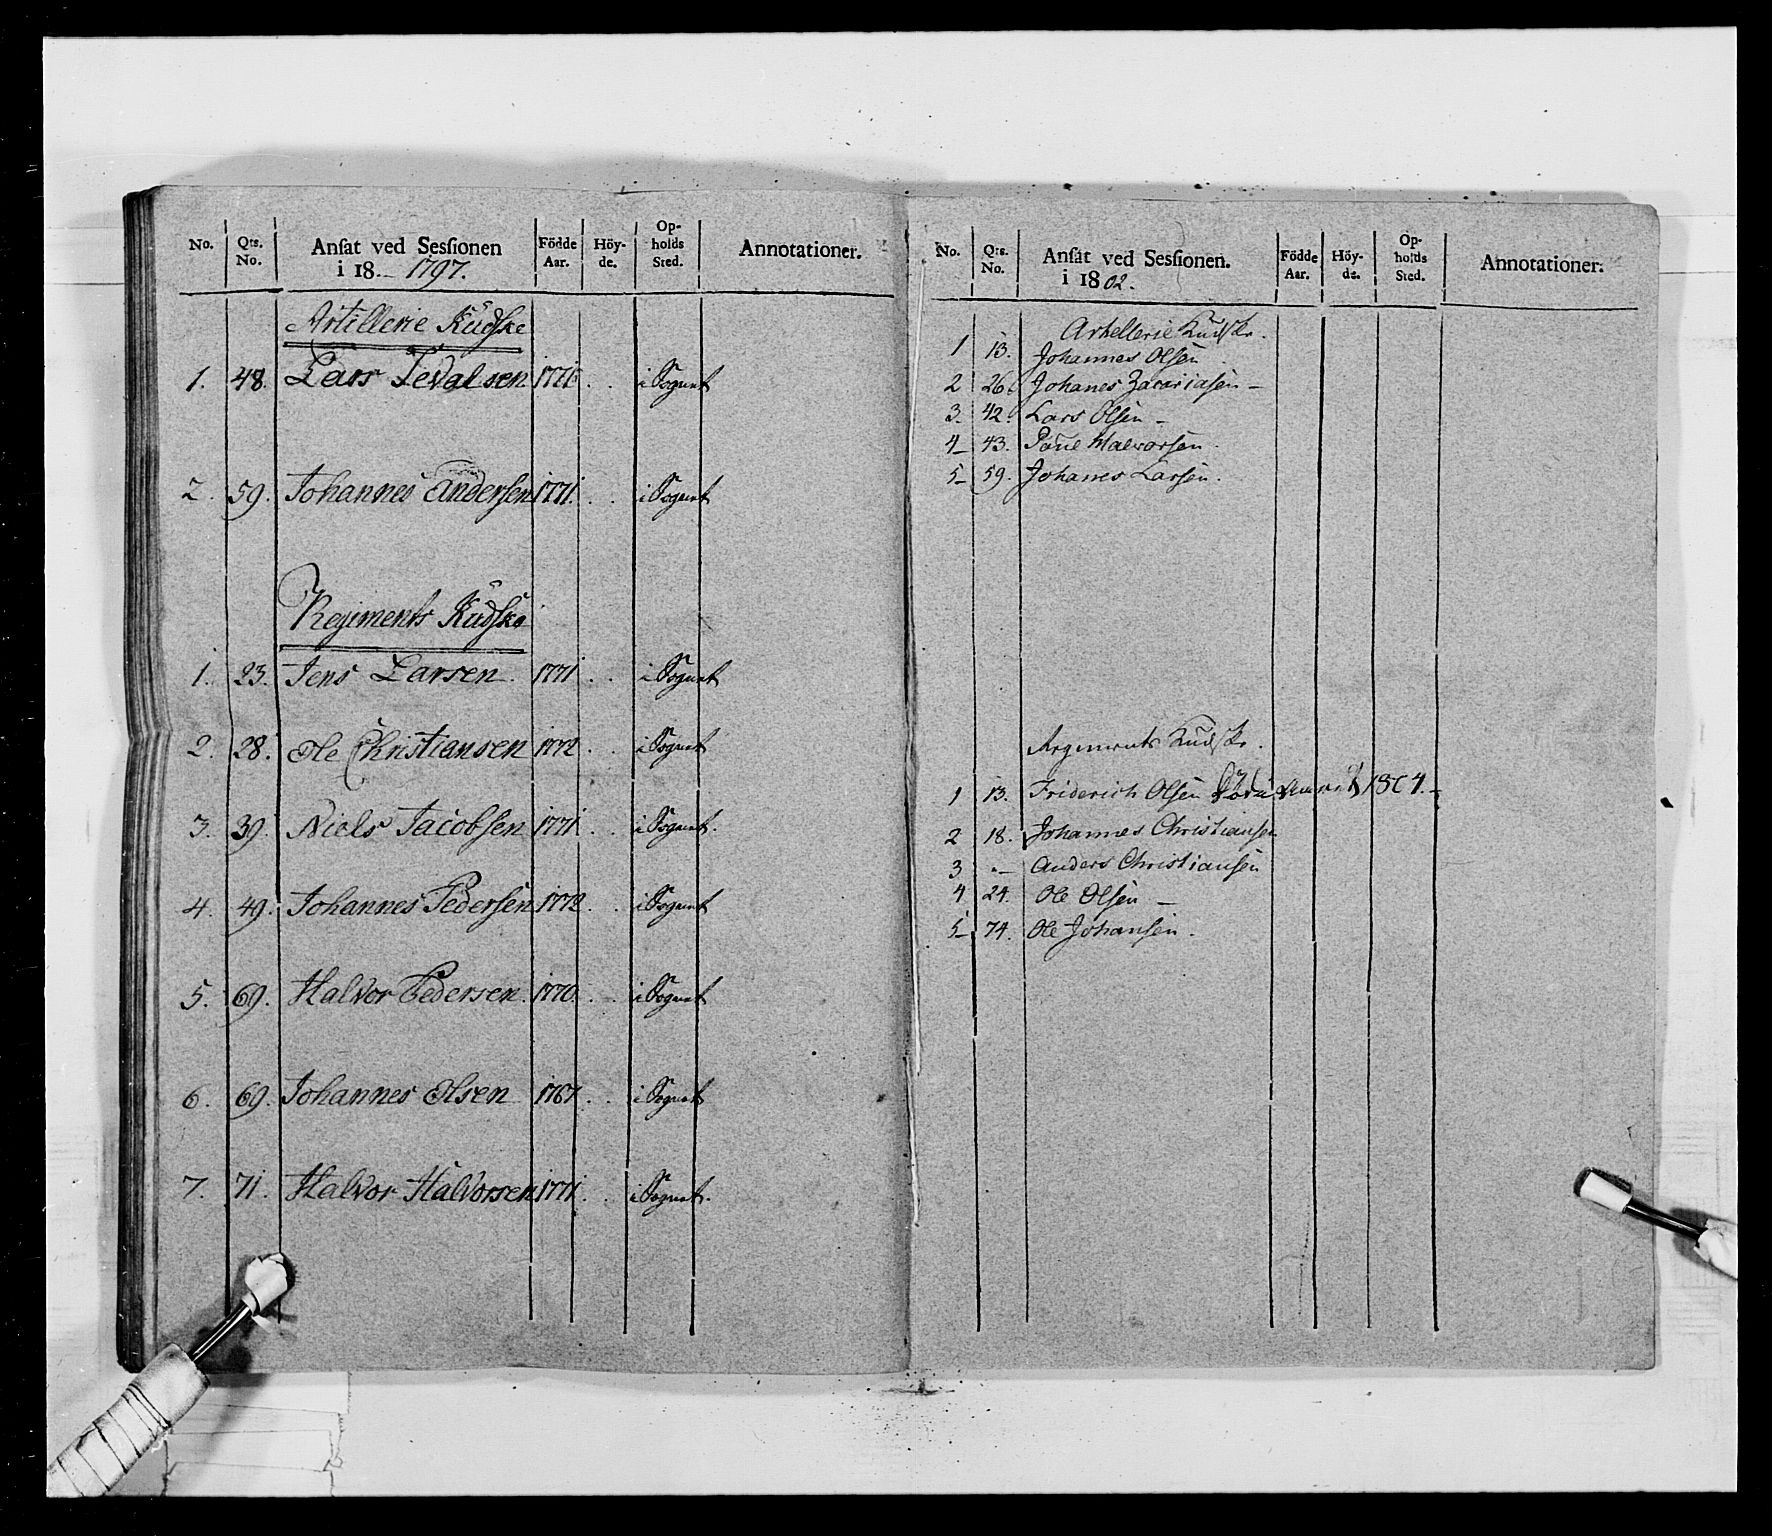 No. Qts. No. Ansat ved Sessionen i 18.- 1797. Födde Aar. Höy-de. Op-holds Sted. Annotationer.
Artillerie Kudske
1. 48. Lars Tevalsen 1776 . . i Sognet
2. 59. Johannes Andersen 1771. . . i Sognet
Regiments Kudske
1. 23. Jens Larsen. 1771 . . i Sognet
2. 28. Ole Christiansen 1772 . . i Sognet
3. 39. Niels Jacobsen 1771 . . i Sognet.
4. 49. Johannes Pedersen 1772 . . i Sognet
5. 69. Halvor Pedersen. 1770. . . i Sognet
6. 69. Johannes Olsen 1767 . . i Sognet
7. 71. Halvor Halvorsen 1771 . . i Sognet.
No. Qts. No. Ansat ved Sessionen. i 1802. Födde Aar. Höy-de. Op-holds Sted. Annotationer.
Artellerie Kudske.
1 13. Johannes Olsen
2 26. Johanes Zacariasen -
3. 42. Lars Olsen -
4- 43. Poul Halvorsen.
5- 59. Johanes Larsen.
Regiments Kudske.
1 13. Friderich Olsen 1804.-
2 18. Johannes Christiansen
3 „- Anders Christiansen
4 24. Ole Olsen -
5- 74. Ole Johansen.